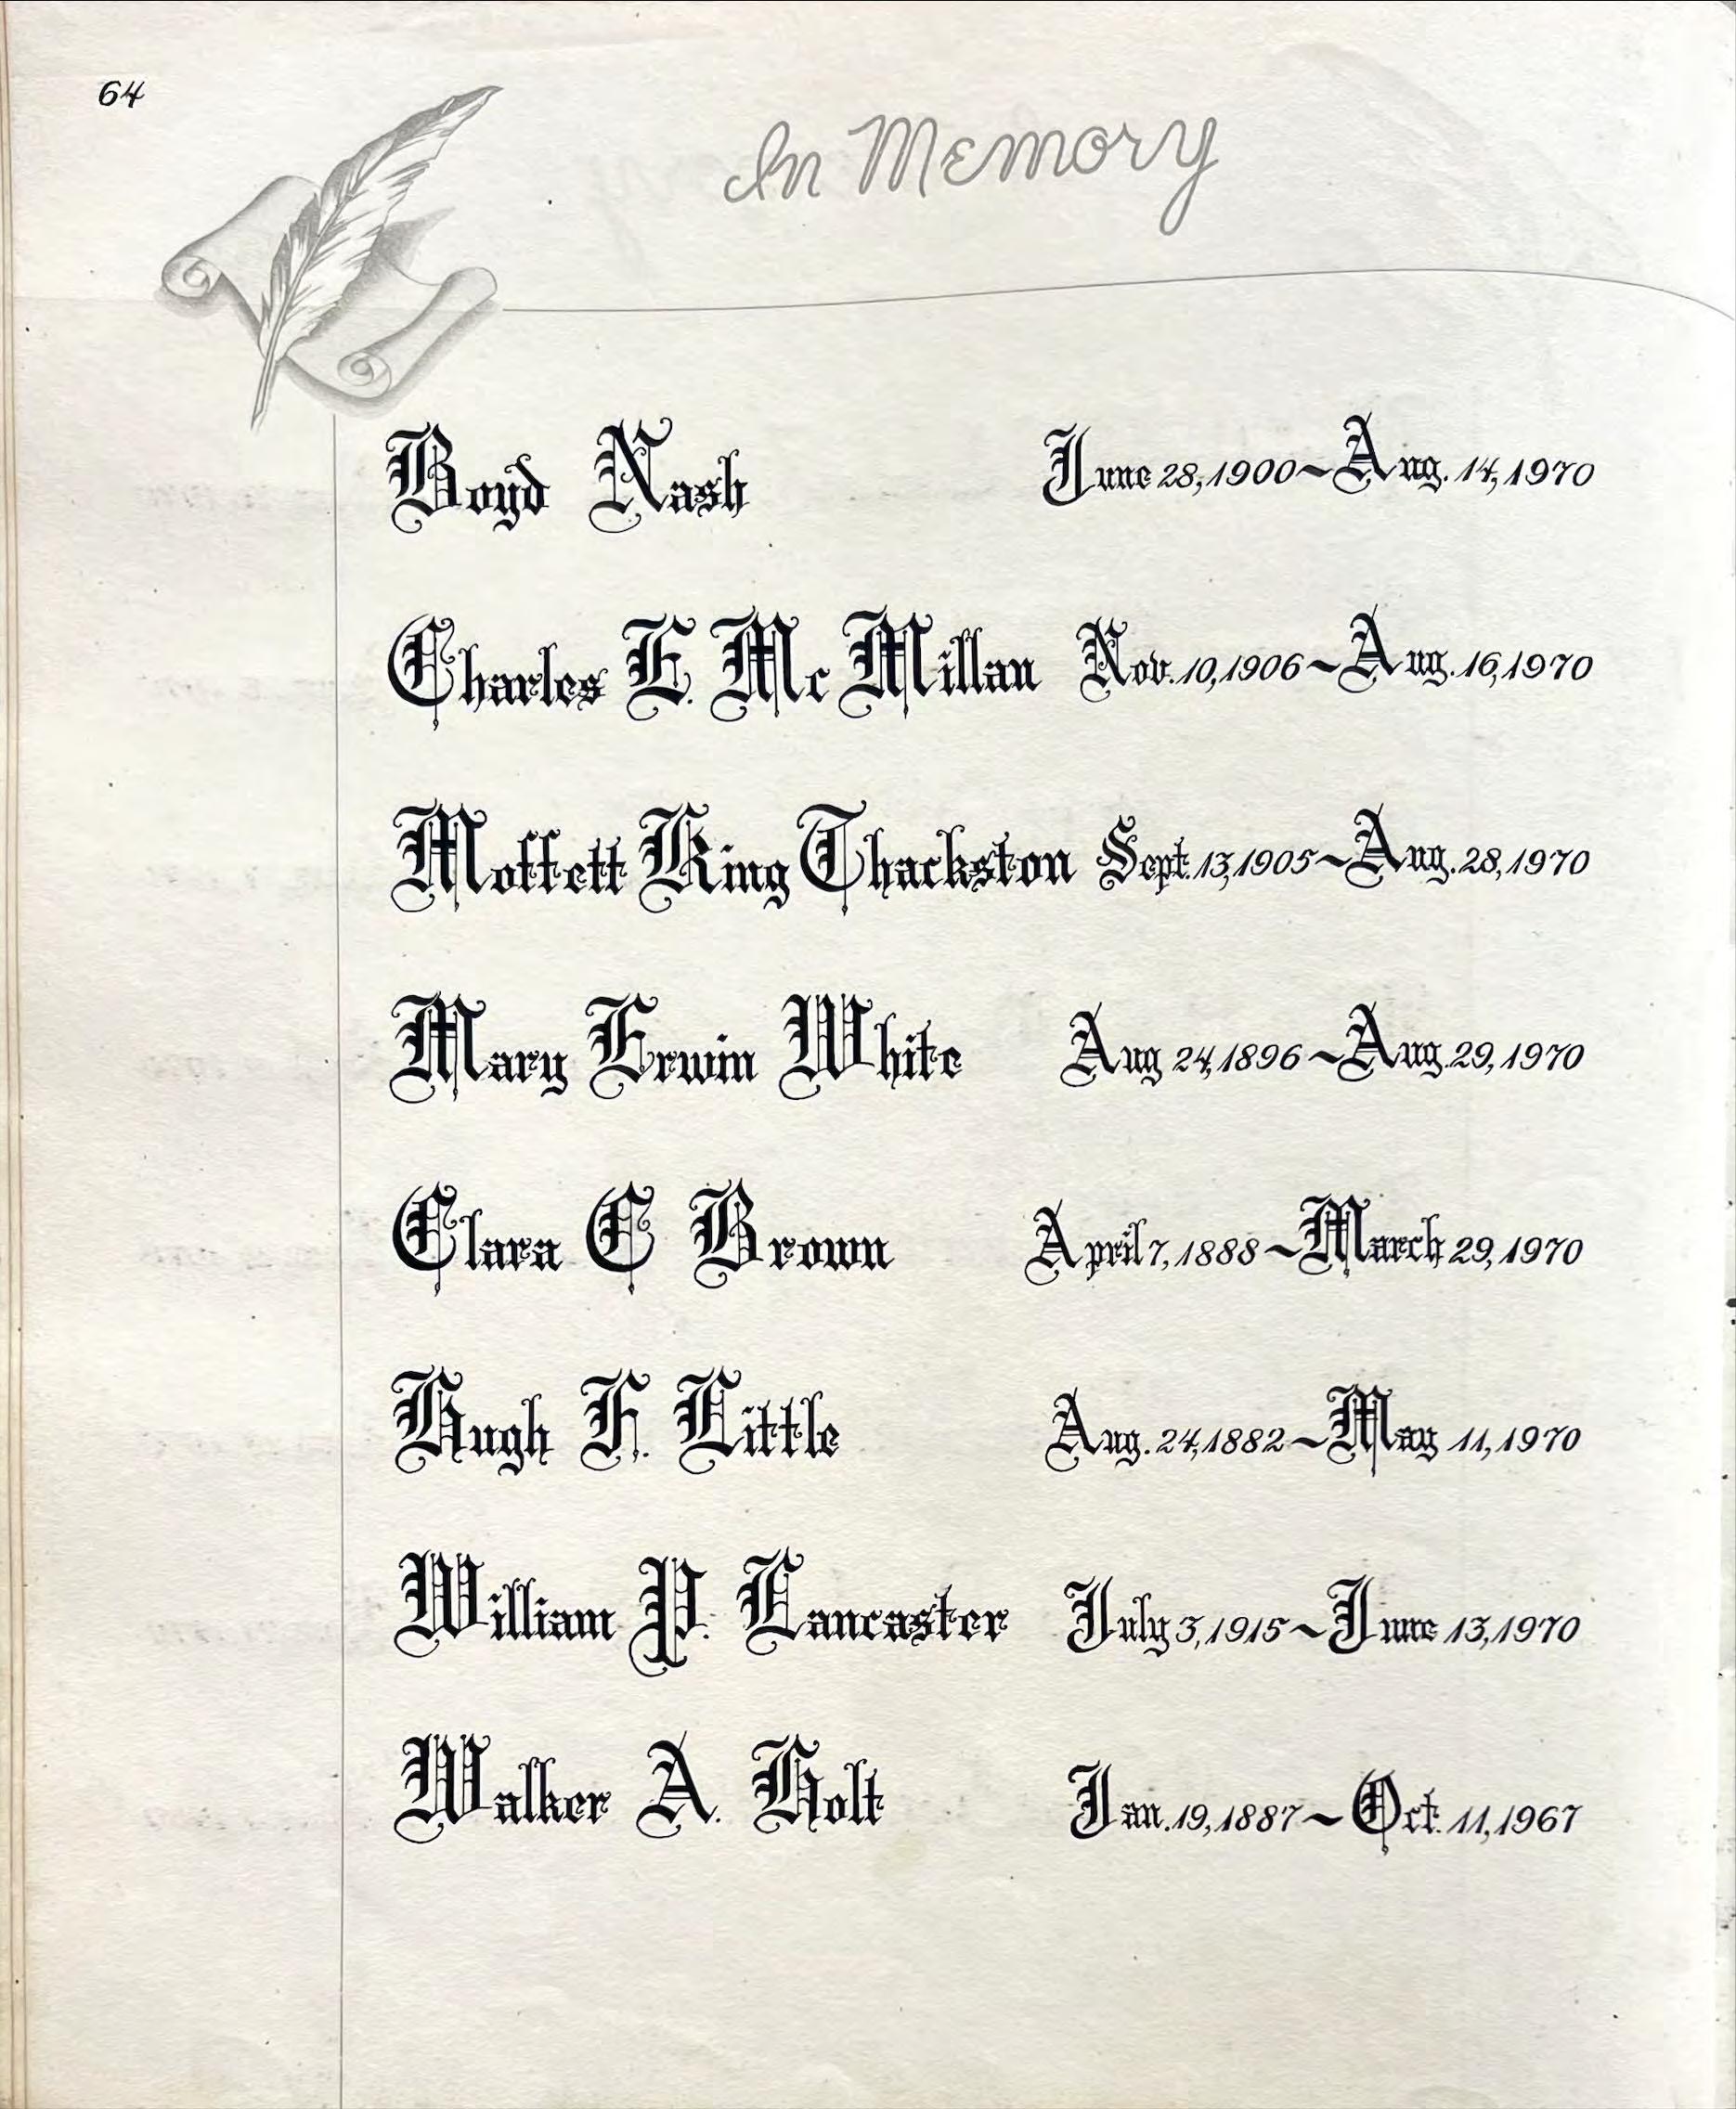 64
In Memory
Boyd Nash June 28, 1900 ~ Aug. 14, 1970
Charles E. Mc Millan Nov. 10, 1906 ~ Aug. 16, 1970
Moffett King Thackston Sept. 13, 1905 ~ Aug. 28, 1970
Mary Erwin White Aug 24, 1896 ~ Aug. 29, 1970
Clara C Brown April 7, 1888 ~ March 29, 1970
Hugh F. Little Aug. 24, 1882 ~ May 11, 1970
William P. Lancaster July 3, 1915 ~ June 13, 1970
Walker A. Holt Jan. 19, 1887 ~ Oct. 11, 1967